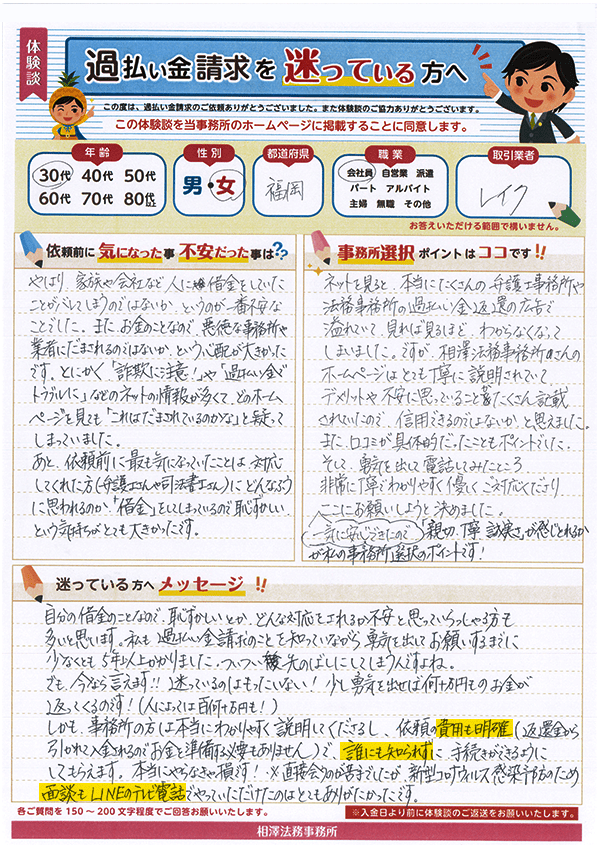 体験談
過払い金請求を迷っている方へ
この度は、過払い金請求のご依頼ありがとうございました。また体験談のご協力ありがとうございます。
この体験談を当事務所のホームページに掲載することに同意します。
年齢
30代 40代 50代
60代 70代 80代
性別
男・女
都道府県
福岡
職業
会社員 自営業 派遣
パート アルバイト
主婦 無職 その他
取引業者
レイク
お答えいただける範囲で構いません。
依頼前に気になった事 不安だった事は??
やはり、家族や会社など人に借金をしていた
ことがバレてしまうのではないか、というのが一番不安な
ことでした。またお金のことなので、悪徳な事務所や
業者にだまされるのではないか、という心配が大きかった
です。とにかく「詐欺に注意!」や「過払い金で
トラブルに」などのネットの情報が多くて、どのホーム
ページを見ても「これはだまされているのかな」と疑って
しまっていました。
あと、依頼前に最も気になっていたことは、対応
してくれた方(弁護士さんや司法書士さん)にどんなふう
に思われるのか、「借金」をしてしまっているので恥ずかしい
という気持ちがとても大きかったです。
事務所選択ポイントはココです!!
ネットを見ると、本当にたくさんの弁護士事務所や
法務事務所の過払い金返還の広告で
溢れていて、見れば見るほど、わからなくなって
しまいました。ですが、相澤法務事務所さんの
ホームページはとても丁寧に説明されていて
デメリットや不安に思っていることもたくさん記載
されていたので、信用できるのではないか、と思えました。
また、口コミが具体的だったこともポイントでした。
そして、勇気を出して電話してみたところ
非常に丁寧でわかりやすく優しくご対応くださり
ここにお願いしようと決めました。
一気に安心できたので
「親切、丁寧、誠実さ」が感じとれるか
が私の事務所選択のポイントです!
迷っている方へメッセージ!!
自分の借金のことなので、恥ずかしいとか、どんな対応をされるか不安と思っていらっしゃる方も
多いと思います。私も過払い金請求のことを知っていながら勇気を出してお願いするまでに
少なくとも5年以上かかりました。ついつい後先のばしにしてしまうんですよね。
でも、今なら言えます!!迷っているのはもったいない!少し勇気を出せば何十万円ものお金が
返ってくるのです!(人によっては百何十万円も!)
しかも、事務所の方は本当にわかりやすく説明してくださるし、依頼の費用も明確(返還金から
引かれて入金されるのでお金を準備する必要もありません)で、誰にも知られずに手続きができるように
してもらえます。本当にやらなきゃ損です!※直接会うのが苦でしたが、新型コロナウィルス感染予防のため
面談もLINEのテレビ電話でやっていただけたのはとてもありがたかったです。
各ご質問を150~200文字程度でご回答お願いいたします。
※入金日より前に体験談のご返送をお願いいたします。
相澤法務事務所